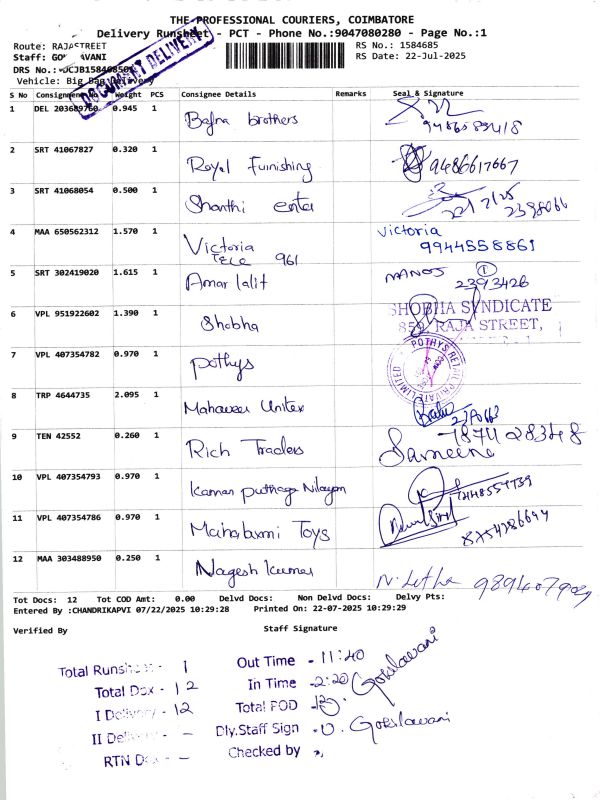 THE PROFESSIONAL COURIERS, COIMBATORE
Delivery Runsheet - PCT - Phone No.:9047080280 - Page No.:1
Route: RAJASTREET
RS No.: 1584685
Staff: VANI
RS Date: 22-Jul-2025
DRS No.:
DOCUMENT DELIVERY
Vehicle: Big Bag Delivery
S No Consignment No Weight PCS Consignee Details Remarks Seal & Signature
1 DEL 203689760 0.945 1 Bafna brothers
2 SRT 41067827 0.320 1 Royal Furnishing 9486617667
3 SRT 41068054 0.500 1 Shanthi enter 22/7/25
4 MAA 650562312 1.570 1 Victoria Tele 961 Victoria 9944558861
5 SRT 302419020 1.615 1 Amar lalit MANOJ 1 2393426
6 VPL 951922602 1.390 1 Shobha SHOBHA SYNDICATE
859, RAJA STREET,
7 VPL 407354782 0.970 1 pothys POTHYS RETAIL PRIVATE LIMITED
8 TRP 4644735 2.095 1 Mahaveer Unitex
9 TEN 42552 0.260 1 Rich Traders Sameena
10 VPL 407354793 0.970 1
11 VPL 407354786 0.970 1 Mahalaxmi Toys
12 MAA 303488950 0.250 1 Nagesh kumar N. Letha
Tot Docs: 12 Tot COD Amt: 0.00 Delvd Docs: Non Delvd Docs: Delvy Pts:
Entered By :CHANDRIKAPVI 07/22/2025 10:29:28 Printed On: 22-07-2025 10:29:29
Verified By Staff Signature
Total Runsheet - 1 Out Time - 11:40
Total Dox - 12 In Time - 2:20 Gokilavani
I Delivery - 12 Total POD - 12
II Delivery - - Dly.Staff Sign - U. Gokilavani
RTN Dox - - Checked by